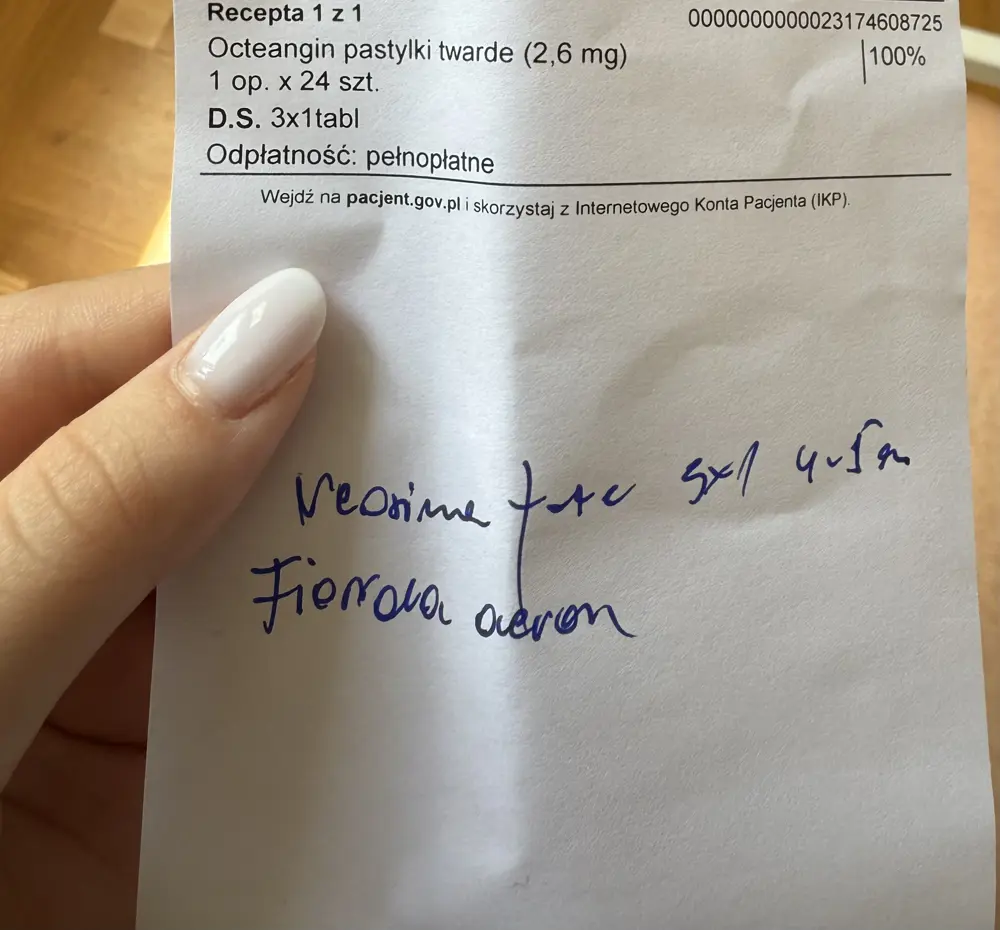 Recepta 1 z 1
0000000000023174608725
Octeangin pastylki twarde (2,6 mg)
100%
1 op. x 24 szt.
D.S. 3x1tabl
Odpłatność: pełnopłatne
Wejdź na pacjent.gov.pl i skorzystaj z Internetowego Konta Pacjenta (IKP).
Neosine